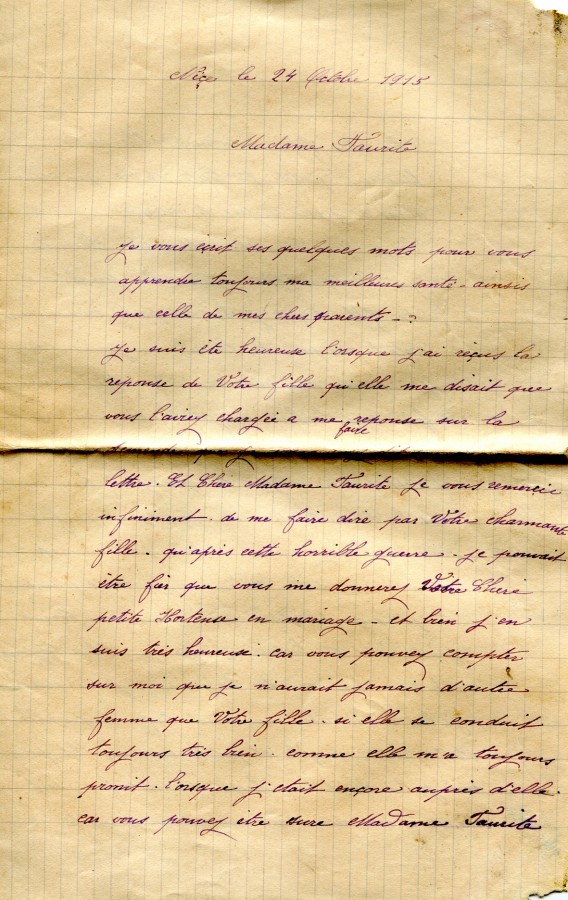 Nice le 24 Octobre 1915
Madame Faurite
Je vous ecrit ses quelques mots pour vous
apprendre toujours ma meilleures santé - ainsis
que celle de mes chers parents - ?
Je suis éte heureuse l'orsque j'ai reçus la
reponse de Votre fille qu'elle me disait que
vous l'aviez chargée a me faite reponse sur la
lettre. Et Chere Madame Faurite je vous remercie
infiniment de me faire dire par Votre charmante
fille. qu'après cette horrible guerre. je pouvait
être fier que vous me donnerez Votre Cheré
petite Hortense en mariage - et bien j'en
suis très heureuse. car vous pouvez compter
sur moi que je n'aurait jamais d'autre
femme que Votre fille. si elle se conduit
toujours très bien. comme elle m'a toujours
promit. l'orsque j'etait ençore auprès d'elle.
car vous pouvez etre sure Madame Faurite